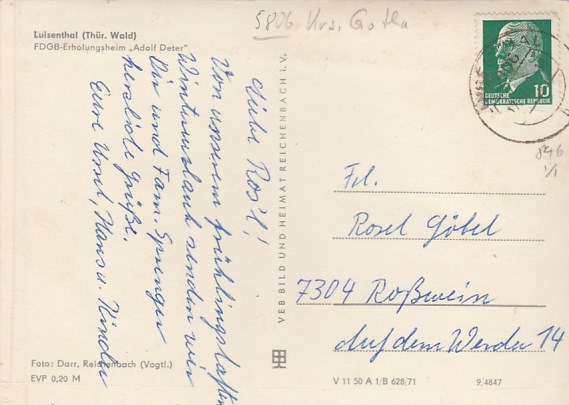 5806 Krs. Gotha
Luisenthal (Thür. Wald)
FDGB-Erholungsheim „Adolf Deter"
Liebe Ros'l!
Von unserem frühlingshaften
Winterurlaub senden wir
Dir und Fam. Sprenger
herzliche Grüße.
Eure Ursel, Hans u. Kinder
VEB BILD UND HEIMAT REICHENBACH I. V.
10
DEUTSCHE
DEMOKRATISCHE REPUBLIK
846
1/1
Frl.
Rosel Göbel
7304 Roßwein
Auf dem Werder 14
Foto: Darr, Reichenbach (Vogtl.)
EVP 0,20 M
V 11 50 A 1/B 628/71
9/4847